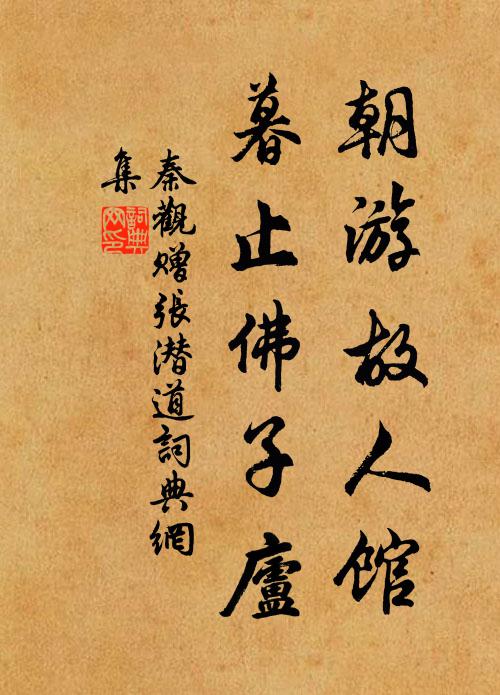 朝游故人館
暮止佛子廬
秦觀贈張潜道詞典網
集
詞典
网印